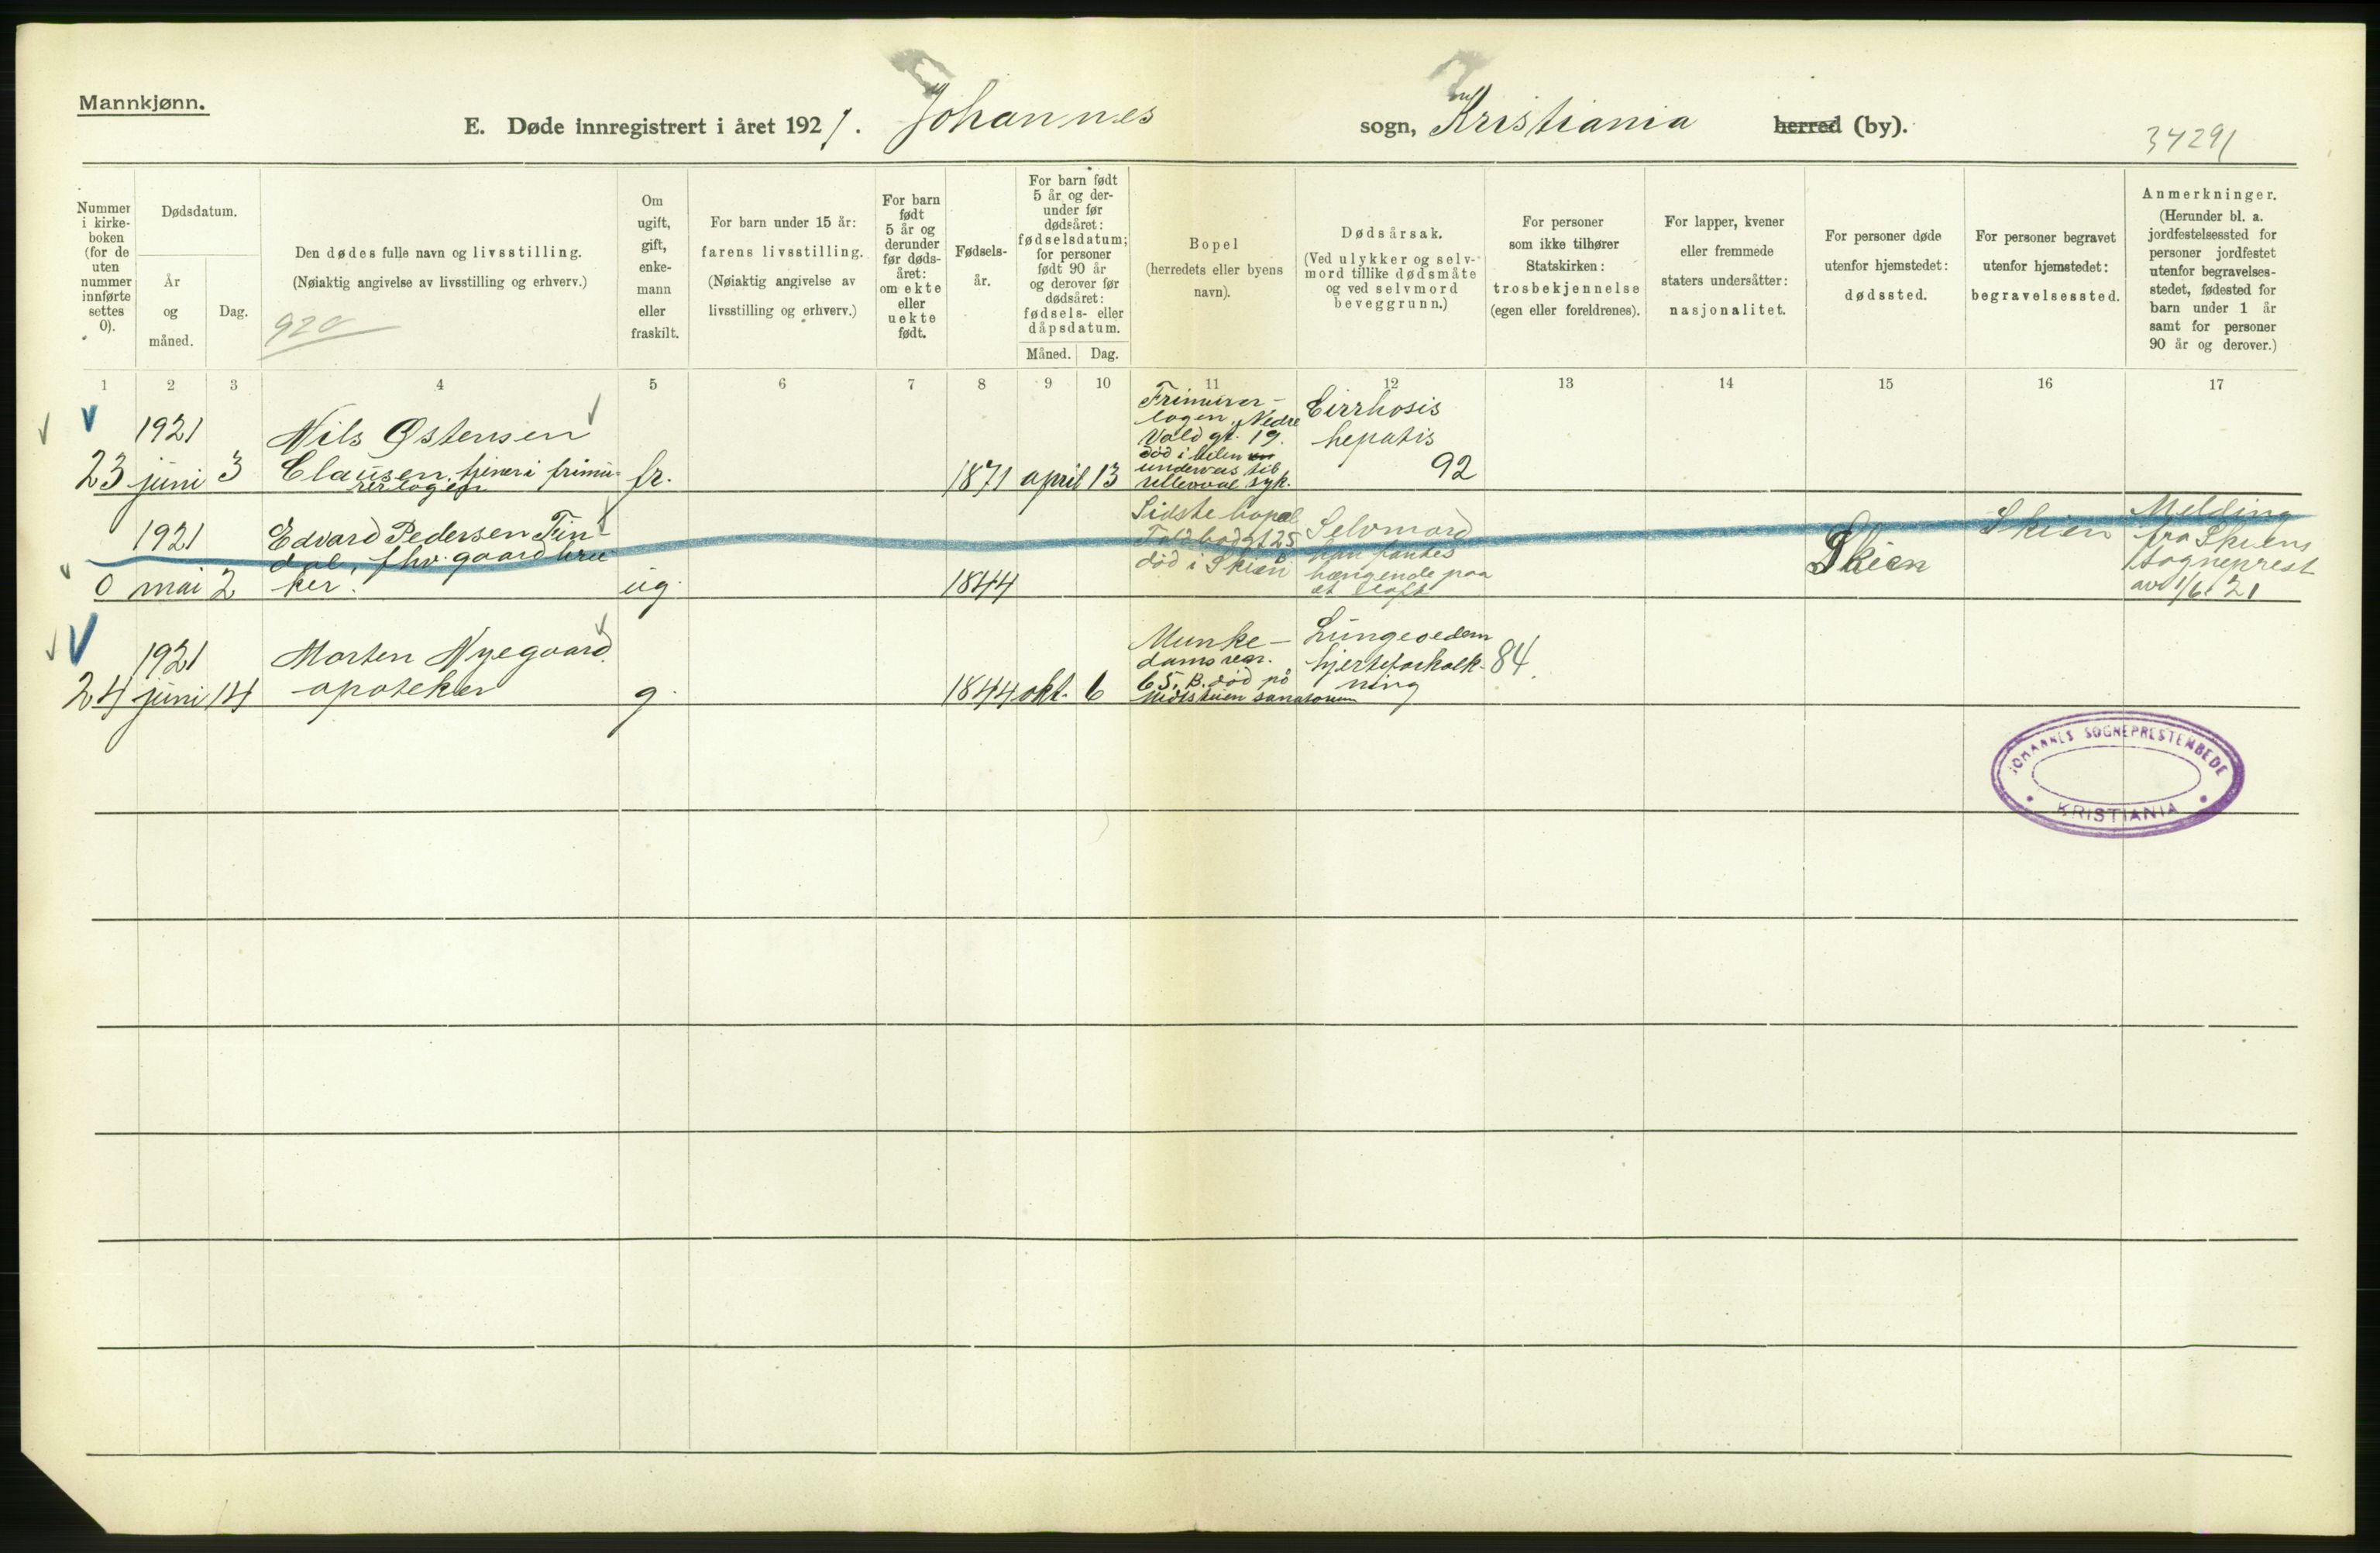 Mannkjønn.
E. Døde innregistrert i året 1921. Johannes sogn, Kristiania herred (by).
34291
Nummer i kirkeboken (for de uten nummer innførte settes 0).
Dødsdatum.
År og måned.
Dag.
Den dødes fulle navn og livsstilling.
(Nøiaktig angivelse av livsstilling og erhverv.)
920
Om ugift, gift, enkemann eller fraskilt.
For barn under 15 år:
farens livsstilling.
(Nøiaktig angivelse av livsstilling og erhverv.)
For barn født 5 år og derunder før dødsåret: om ekte eller uekte født.
Fødselsår.
For barn født 5 år og derunder før dødsåret: fødselsdatum; for personer født 90 år og derover før dødsåret: fødsels- eller dåpsdatum.
Måned. Dag.
Bopel
(herredets eller byens navn).
Dødsårsak.
(Ved ulykker og selvmord tillike dødsmåte og ved selvmord beveggrunn.)
For personer som ikke tilhører Statskirken: trosbekjennelse (egen eller foreldrenes).
For lapper, kvener eller fremmede staters undersåtter: nasjonalitet.
For personer døde utenfor hjemstedet: dødssted.
For personer begravet utenfor hjemstedet: begravelsessted.
Anmerkninger.
(Herunder bl. a. jordfestelsessted for personer jordfestet utenfor begravelsesstedet, fødested for barn under 1 år samt for personer 90 år og derover.)
1 2 3 4 5 6 7 8 9 10 11 12 13 14 15 16 17
23
1921
juni
3
Nils Østensen
Clausen, tjener i frimu-
rerlogen
fr.
1871 april 13
Frimurer-
logen, Nedre
Vold gt. 19.
død i bilen
underveis til
Ullevaal syk.
Cirrhosis
hepatis
92
0
1921
mai
2
Edvard Pedersen Tin-
dal, fhv. gaardbru-
ker.
ug.
1844
Sidste bopæl
Toldbodgt 25
død i Skien
Selvmord
han fantes
hængende paa
et loft
Skien
Skien
Melding
fra Skiens
sogneprest
av 1/6. 21
24
1921
juni
14
Morten Nyegaard.
apoteker
g.
1844 okt. 6
Munke-
damsvn.
65. B. død på
Mesnalien sanatorium
Lungeoedem
hjerteforkalk-
ning
84.
JOHANNES SOGNEPRESTEMBEDE
KRISTIANIA